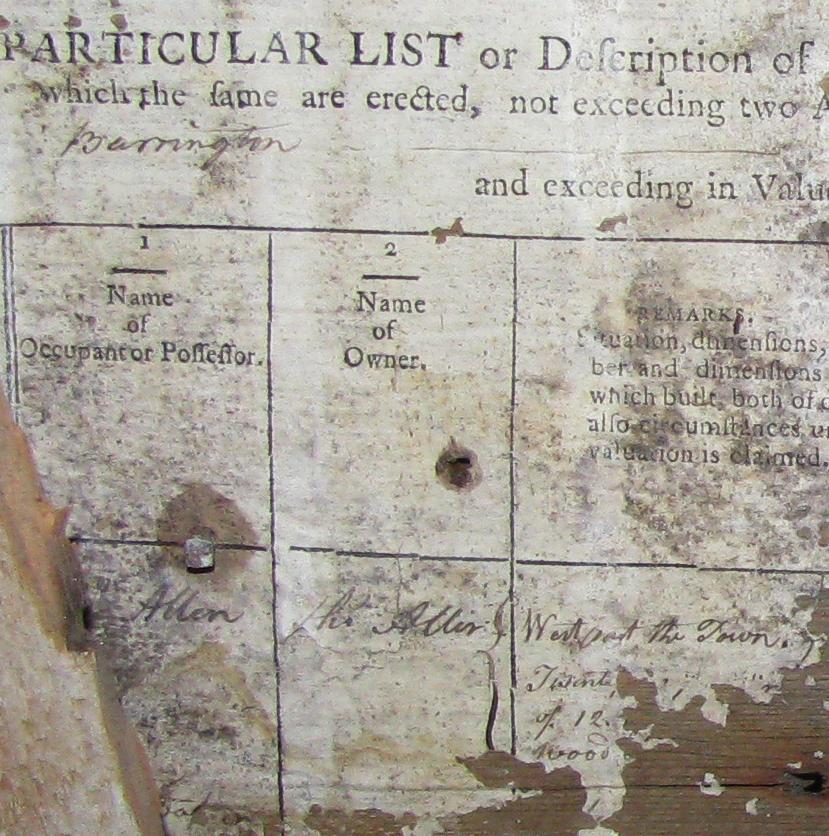 PARTICULAR LIST or Deſcription of
which the ſame are erected, not exceeding two A
Barrington
and exceeding in Valu
1
Name
of
Occupant or Poſſeſſor.
2
Name
of
Owner.
REMARKS.
Situation, dimenſions,
ber and dimenſions
which built, both of
alſo circumſtances u
valuation is claimed.
Allen
Tho Allen
West part the Town.
of 12.
wood